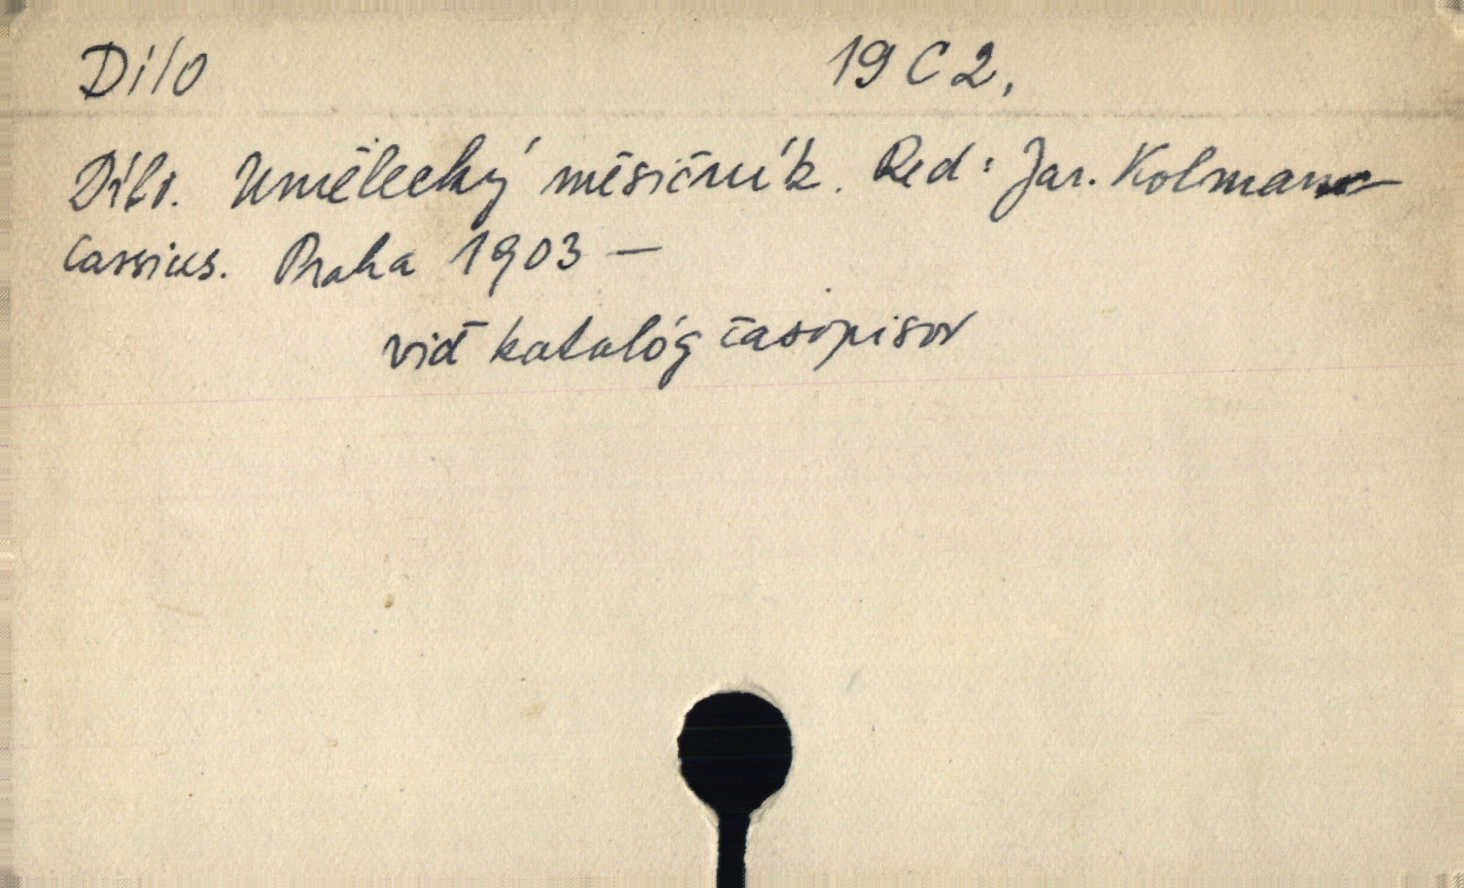 Dílo 19 C 2,
Dílo. Umělecký měsíčník. Red: Jar. Kolman-
Cassius. Praha 1903 —
viď katalóg časopisov